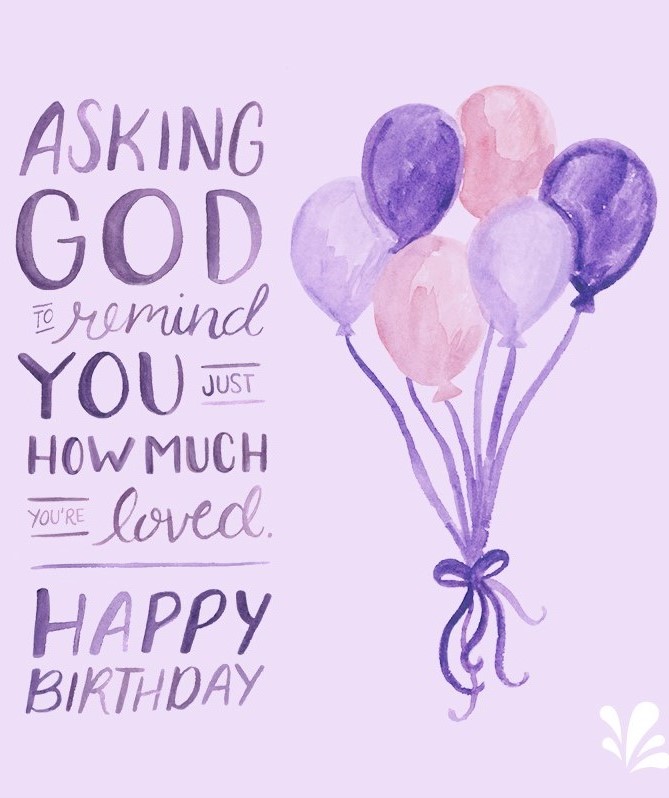 ASKING
GOD
TO remind
YOU JUST
HOW MUCH
YOU'RE loved.
HAPPY
BIRTHDAY